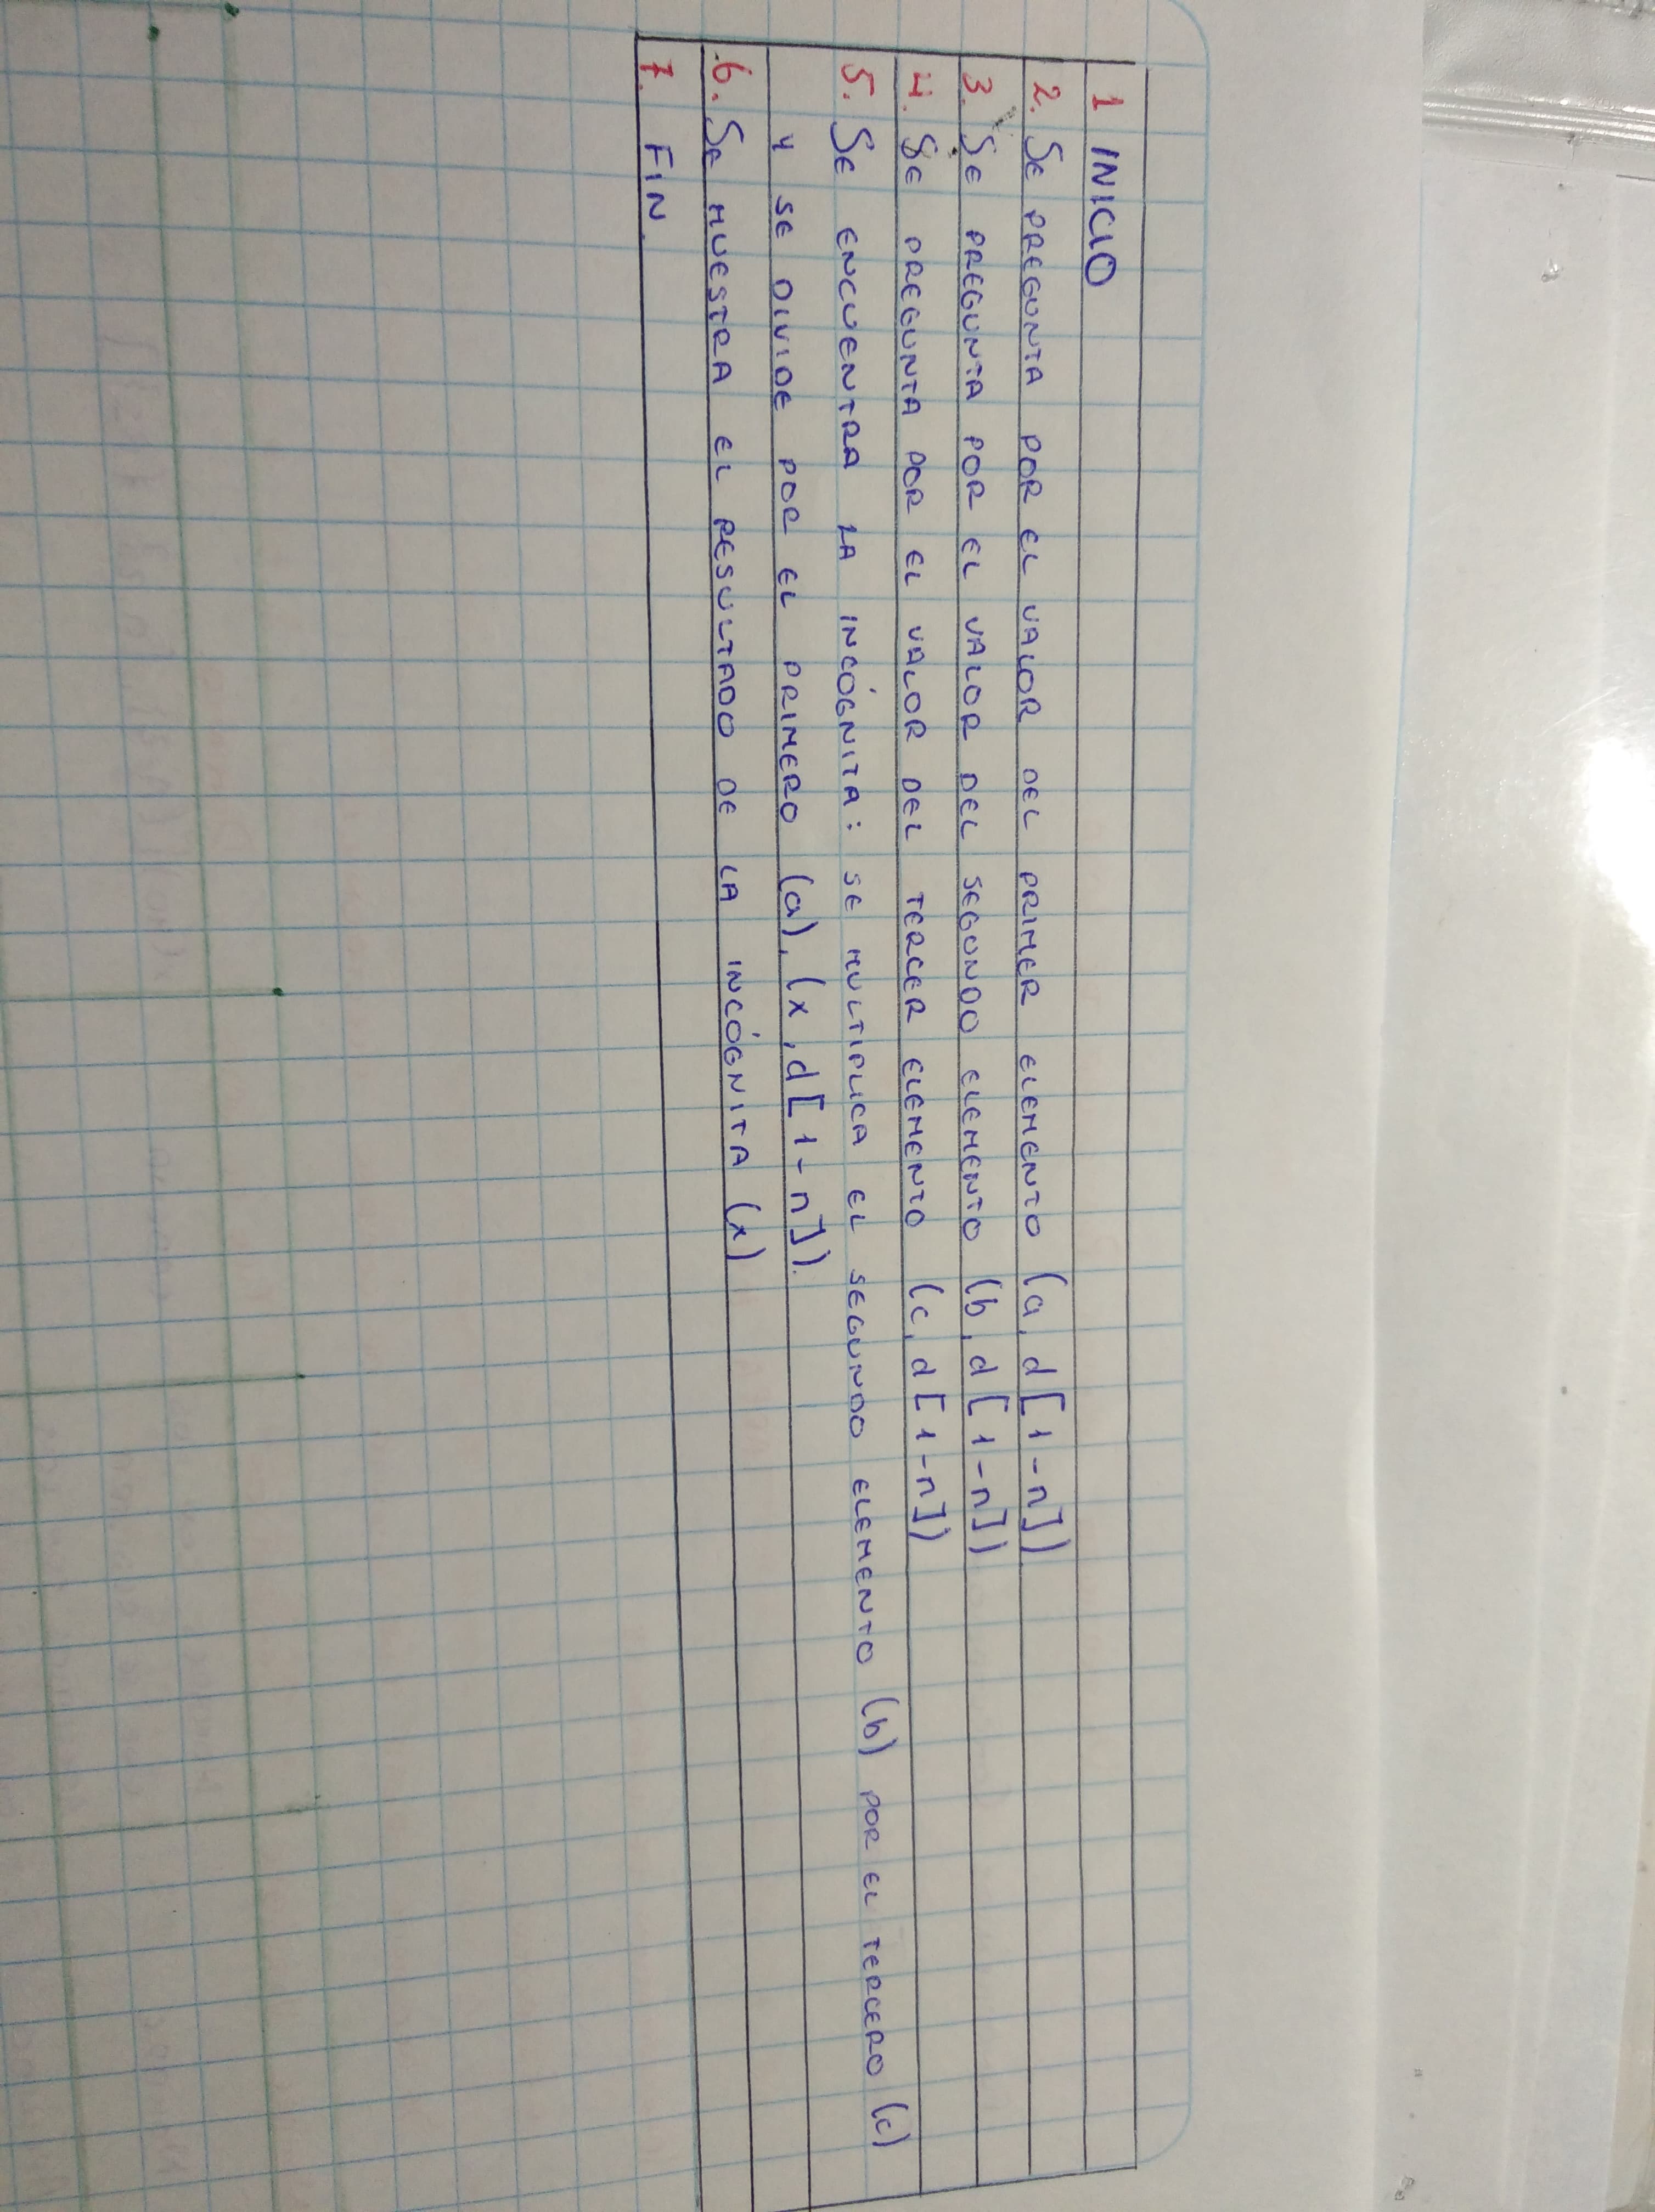 1 INICIO
2. SE PREGUNTA POR EL VALOR DEL PRIMER ELEMENTO (a, d[1-n])
3. SE PREGUNTA POR EL VALOR DEL SEGUNDO ELEMENTO (b, d[1-n])
4. SE PREGUNTA POR EL VALOR DEL TERCER ELEMENTO (c, d[1-n])
5. SE ENCUENTRA LA INCÓGNITA: SE MULTIPLICA EL SEGUNDO ELEMENTO (b) POR EL TERCERO (c)
Y SE DIVIDE POR EL PRIMERO (a), (x, d[1-n]).
6. SE MUESTRA EL RESULTADO DE LA INCÓGNITA (x)
7. FIN.